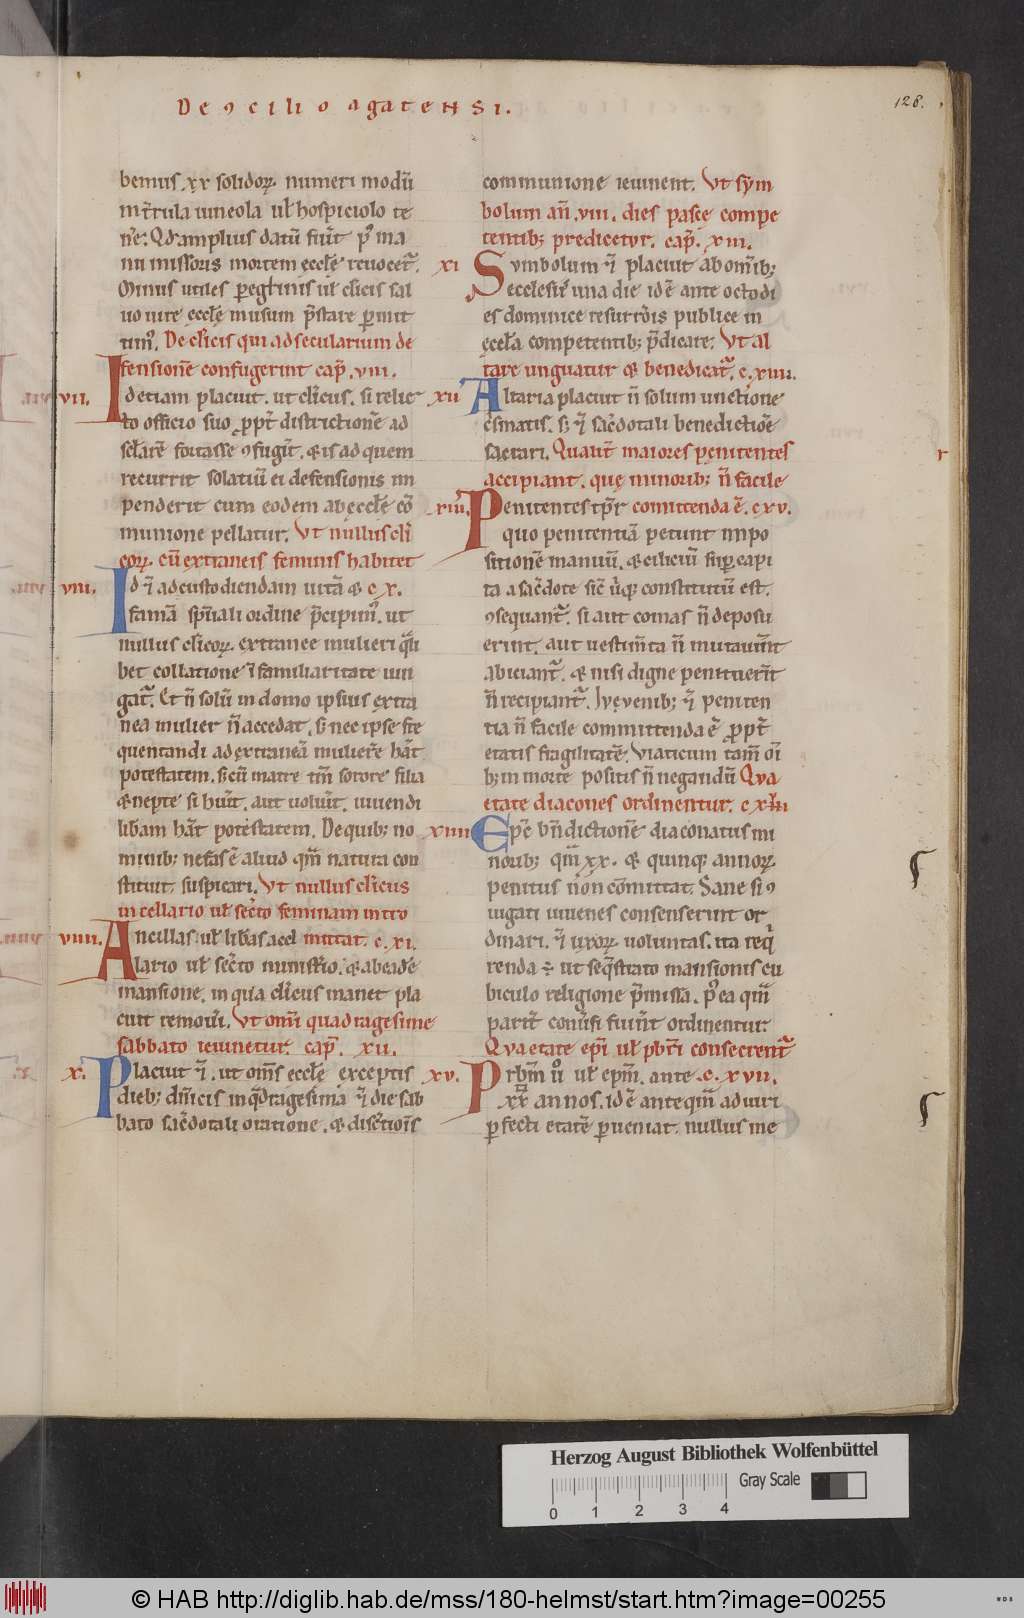 De ɔcilio agatensi.
128.
bemus .xx solidoꝝ. numeri modū
mr̄rula iuneola ul̄ hospiciolo te
nr̄e. Qd amplius datū fiūt p⁹ ma
nu missoris mortem ęccłe reuocet᷑.
Minus utiles ꝑegrinis ul̄ clicis sal
uo iure ęccłę in usum p̄stare ꝑmit
tim⁹. De cl̄icis qui ad secularium de
fensionē confugerint cap̄. viii.
vii.
Id etiam placuit. ut cl̄icus. si relic
to officio suo ꝓpt̄ districtionē ad
scl̄arē fortasse ɔfugit̄. ⁊ is ad quem
recurrit solatiū ei defensionis im
penderit cum eodem ab ęccłe cō
munione pellatur. Ut nullus cl̄i
coꝝ. cū extraneis feminis habitet
viii.
Id ⁊̄ ad custodiendam uitā ⁊ c x.
famā sp̄ali ordine p̄cipim⁹. ut
nullus cl̄icoꝝ. extranee mulieri q̄li
bet collatione ł familiaritate iun
gat᷑. Et n̄ solū in domo ipsius extra
nea mulier n̄ accedat. s; nec ipse fre
quentandi ad extraneā mulierē hāt
potestatem. s; cū matre tm̄ sorore filia
⁊ nepte si hūt̄. aut uolūt̄. uiuendi
libam hāt potestatem. De quib; no
minib; nefas ē aliud qm̄ natura con
stituit suspicari. Ut nullus cl̄icus
in cellario ul̄ secr̄to feminam intro
viiii.
Ancillas ul̄ libas a cel mittat. c. xi.
lario ul̄ secr̄to ministr̄io. ⁊ ab eadē
mansione. in qua cl̄icus manet pla
cuit remoui. Ut om̄i quadragesime
sabbato ieiunetur. cap̄. xii.
x.
Placuit ⁊̄. ut om̄s eccłę exceptis
dieb; dn̄icis in q̄dragesima ⁊̄ die sab
bato sac̄dotali oratione. ⁊ discr̄tiois
communione ieiunent. Ut sym
bolum an̄ .viii. dies pasce compe
tentib; predicetur. cap̄. xiii.
xi
Symbolum ⁊̄ placuit ab om̄ib;
ecclesiis una die id ē ante octo di
es dominice resurrōis publice in
ęccła competentib; p̄dicare. Ut al
tare unguatur ⁊ benedicat᷑. c. xiiii.
xii
Altaria placuit n̄ solum unctione
c̄smatis. s; ⁊̄ sac̄dotali benedictiōe
sacrari. Qualit̄ maiores penitentes
accipiant. que minorib; n̄ facile
xiii.
Penitentes tp̄r comittenda ē. c xv.
quo penitentiā petunt inpo
sitionē manuū. ⁊ ciliciū sup capi
ta a sac̄dote sic̄ ubiq; constitutū est.
ɔsequant᷑. si aut comas n̄ deposu
erint. aut uestim̄ta n̄ mutauīnt
abiciant᷑. ⁊ nisi digne penituerīt
n̄ recipiant᷑. Iuvenib; ⁊̄ peniten
tia n̄ facile committenda ē ꝓpt̄
etatis fragilitatē. Viaticum tam̄ oī
b; in morte positis n̄ negandū Qua
etate diacones ordinentur. c xvi
xiiii
Epc̄ bn̄dictionē diaconatus mi
norib; qm̄ xx. ⁊ quinq; annoꝝ.
penitus non cōmittat. Sane si ɔ
iugati iuuenes consenserint or
dinari. ⁊̄ uxoꝝ uoluntas. ita req̄
renda ÷ ut seq̄strato mansionis cu
biculo religione p̄missa. p⁹ea qm̄
parit̄ conūsi fuīnt ordinentur.
Qua etate epī ul̄ pbr̄i consecrent᷑
xv.
Prbm̄ ū ul̄ epm̄. ante c. xvii.
xxx annos. id ē ante qm̄ ad uiri
ꝑfecti etatē ꝑueniat. nullus me
Herzog August Bibliothek Wolfenbüttel
Gray Scale
0 1 2 3 4
© HAB http://diglib.hab.de/mss/180-helmst/start.htm?image=00255